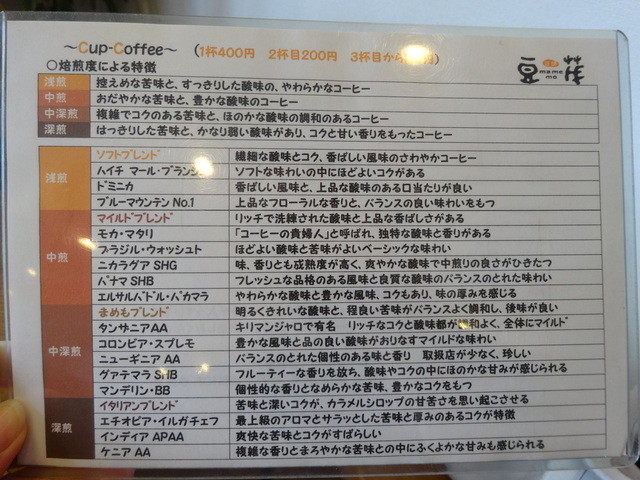 ～Cup-Coffee～ (1杯400円 2杯目200円 3杯目から 円)
○焙煎度による特徴
豆茶
mame
ma
浅煎 控えめな苦味と、すっきりした酸味の、やわらかなコーヒー
中煎 おだやかな苦味と、豊かな酸味のコーヒー
中深煎 複雑でコクのある苦味と、ほのかな酸味の調和のあるコーヒー
深煎 はっきりした苦味と、かなり弱い酸味があり、コクと甘い香りをもったコーヒー
浅煎
ソフトブレンド 繊細な酸味とコク、香ばしい風味のさわやかコーヒー
ハイチ マール・ブランシュ ソフトな味わいの中にほどよいコクがある
ドミニカ 香ばしい風味と、上品な酸味のある口当たりが良い
ブルーマウンテン No.1 上品なフローラルな香りと、バランスの良い味わいをもつ
中煎
マイルドブレンド リッチで洗練された酸味と上品な香ばしさがある
モカ・マタリ 「コーヒーの貴婦人」と呼ばれ、独特な酸味と香りがある
ブラジル・ウォッシュト ほどよい酸味と苦味がよいベーシックな味わい
ニカラグア SHG 味、香りとも成熟度が高く、爽やかな酸味で中煎りの良さがひきたつ
パナマ SHB フレッシュな品格のある風味と良質な酸味のバランスのとれた味わい
エルサルバドル・パカマラ やわらかな酸味と豊かな風味、コクもあり、味の厚みを感じる
中深煎
まめもブレンド 明るくきれいな酸味と、程良い苦味がバランスよく調和し、後味が良い
タンザニアAA キリマンジャロで有名 リッチなコクと酸味都が調和よく、全体にマイルド
コロンビア・スプレモ 豊かな風味と品の良い酸味がおりなすマイルドな味わい
ニューギニア AA バランスのとれた個性のある味と香り 取扱店が少なく、珍しい
グァテマラ SHB フルーティーな香りを放ち、酸味やコクの中にほのかな甘みが感じられる
マンデリン・BB 個性的な香りとなめらかな苦味、豊かなコクをもつ
深煎
イタリアンブレンド 苦味と深いコクが、カラメルシロップの甘苦さを思い起こさせる
エチオピア・イルガチェフ 最上級のアロマとサラッとした苦味と厚みのあるコクが特徴
インディア APAA 爽快な苦味とコクがすばらしい
ケニア AA 複雑な香りとまろやかな苦味との中にふくよかな甘みも感じられる